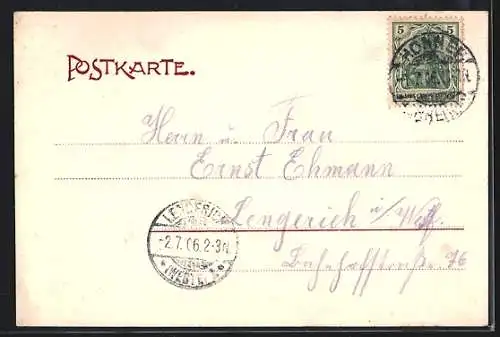 POSTKARTE.
5 5
HONNEF
(RHEIN)
Herrn u. Frau
Ernst Ehmann
Lengerich i/W.
Bahnhofstraße 76
LENGERICH
-2.7.06.2-3N
* (WESTF.) *